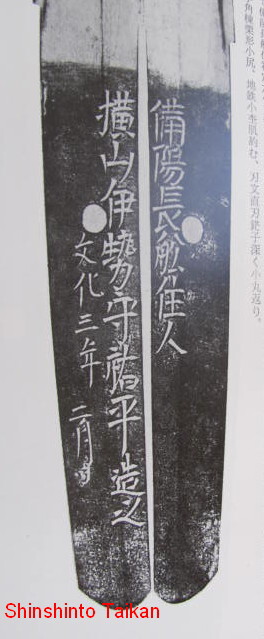 角棟栗形小尻、地鉄小杢肌約む、刃文直刃鋩子深く小丸返り。
備陽長船住人
横山伊勢守祐平造之
文化三年 二月日
Shinshinto Taikan